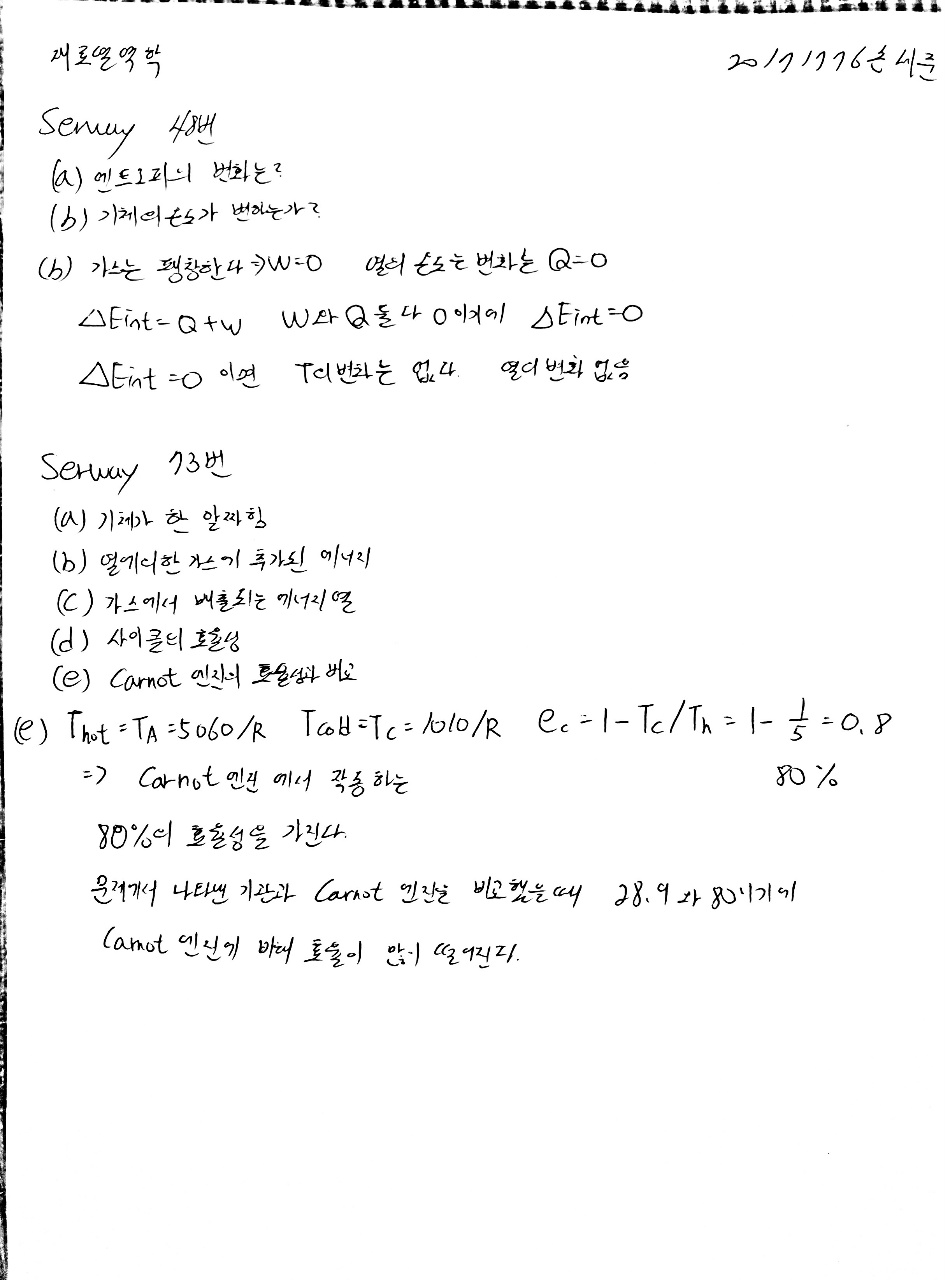 재료열역학 20171776손세준
Serway 48번
(a) 엔트로피의 변화는?
(b) 기체의 온도가 변하는가?
(b) 가스는 팽창한다 ⇒ W=0 열의 온도는 변화는 Q=0
△Eint = Q+W W와 Q 둘다 0 이기에 △Eint=0
△Eint =0 이면 T의 변화는 없다. 열의 변화 없음
Serway 73번
(a) 기체가 한 알짜힘
(b) 열에의한 가스에 추가된 에너지
(C) 가스에서 배출되는 에너지 열
(d) 사이클의 효율성
(e) Carnot 엔진의 효율성과 비교
(e) Thot = TA = 5060/R Tcold = Tc = 1010/R ec = 1 - Tc/Th = 1 - 1/5 = 0.8
=> Carnot 엔진 에서 작동하는 80%
80%의 효율성을 가진다.
문제에서 나타낸 기관과 Carnot 엔진을 비교했을때 28.9 와 80이기에
Carnot 엔진에 비해 효율이 많이 떨어진다.